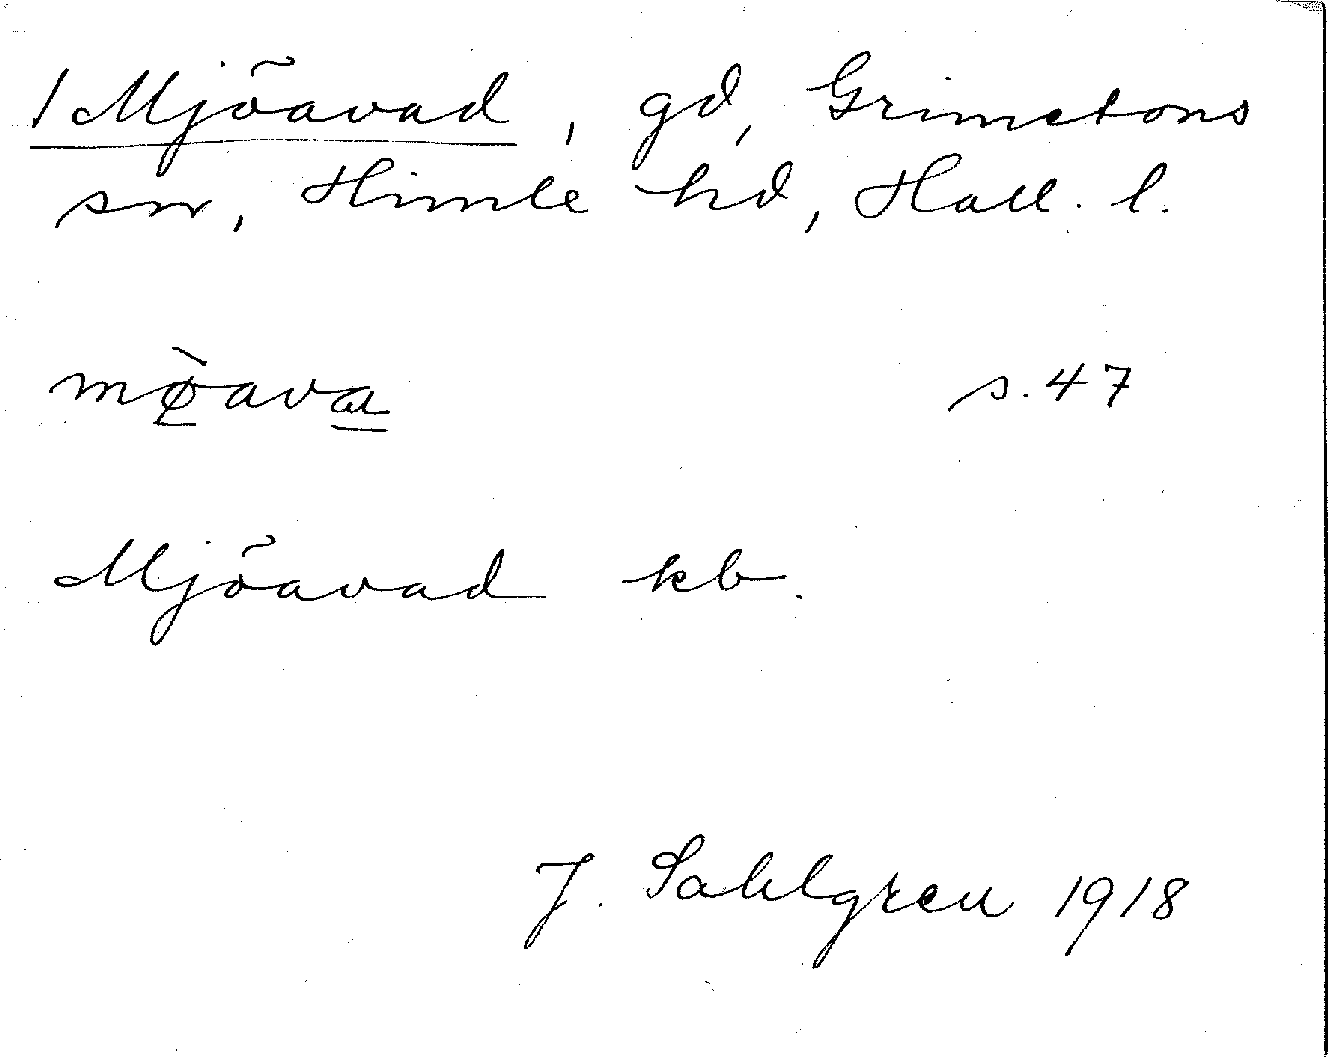 1 Mjöavad, gd, Grimetons
sn, Himle hd, Hall. l.
mø̀ava s. 47
Mjöavad kb.
J. Sahlgren 1918